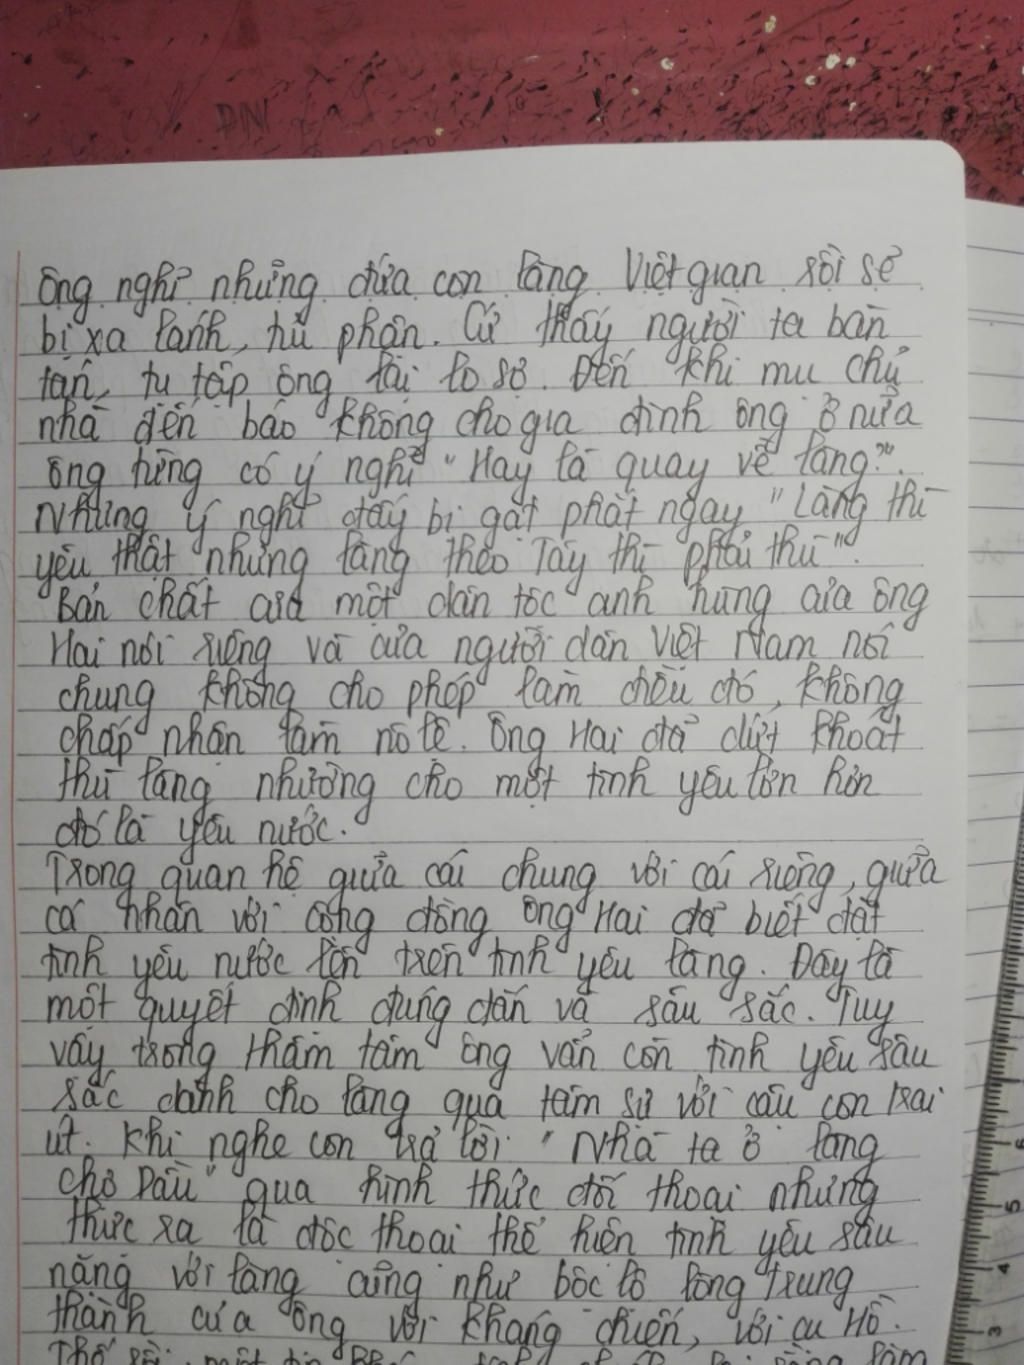 ông nghĩ những đứa con làng Việt gian rồi sẽ
bị xa lánh, hủ phận. Cứ thấy người ta bàn
tán, tụ tập ông lại lo sợ. Đến khi mụ chủ
nhà đến báo không cho gia đình ông ở nữa
ông từng có ý nghĩ "Hay là quay về làng?".
Nhưng ý nghĩ đấy bị gạt phắt ngay "Làng thì
yêu thật nhưng làng theo Tây thì phải thù".
Bản chất của một dân tộc anh hùng của ông
Hai nói riêng và của người dân Việt Nam nói
chung không cho phép làm điều đó, không
chấp nhận làm nô lệ. Ông Hai đã dứt khoát
thù làng nhường cho một tình yêu lớn hơn
đó là yêu nước.
Trong quan hệ giữa cái chung với cái riêng, giữa
cá nhân với cộng đồng ông Hai đã biết đặt
tình yêu nước lên trên tình yêu làng. Đây là
một quyết định đúng đắn và sâu sắc. Tuy
vậy trong thâm tâm ông vẫn còn tình yêu sâu
sắc dành cho làng qua tâm sự với cậu con trai
út. Khi nghe con trả lời: "Nhà ta ở làng
chợ Dầu" qua hình thức đối thoại nhưng
thực ra là độc thoại thể hiện tình yêu sâu
nặng với làng cũng như bộc lộ lòng trung
thành của ông với kháng chiến, với cụ Hồ.
Thế rồi, một tin